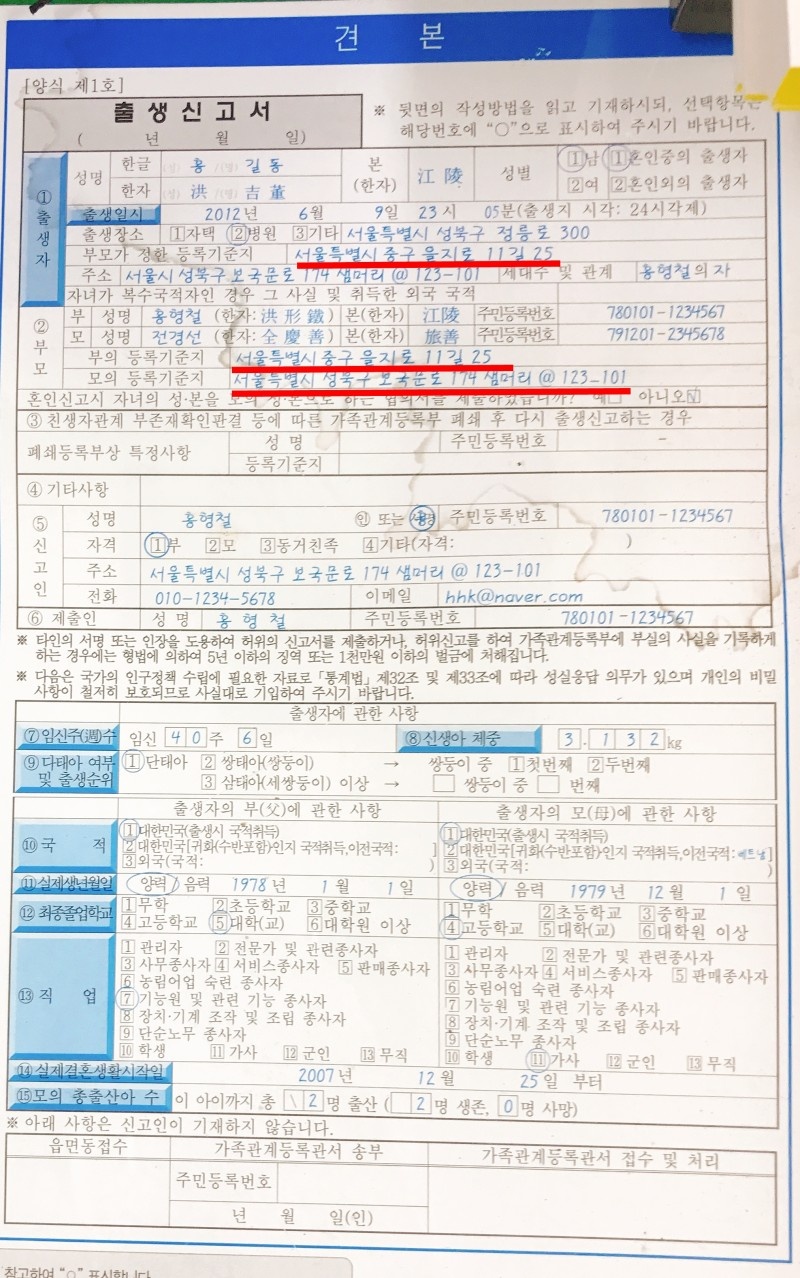 견 본
[양식 제1호]
출 생 신 고 서
( 년 월 일)
※ 뒷면의 작성방법을 읽고 기재하시되, 선택항목은
해당번호에 "○"으로 표시하여 주시기 바랍니다.
① 출생자
성명 한글 (성) 홍 /(명) 길 동 본(한자) 江 陵 성별 1남 1혼인중의 출생자
한자 (성) 洪 /(명) 吉 董 2여 2혼인외의 출생자
출생일시 2012년 6월 9일 23시 05분(출생지 시각: 24시각제)
출생장소 1자택 2병원 3기타 서울특별시 성북구 정릉로 300
부모가 정한 등록기준지 서울특별시 중구 을지로 11길 25
주소 서울시 성북구 보국문로 174 샘머리 @ 123-101 세대주 및 관계 홍형철의 자
자녀가 복수국적자인 경우 그 사실 및 취득한 외국 국적
② 부모
부 성명 홍형철 (한자: 洪 形 鐵) 본(한자) 江陵 주민등록번호 780101-1234567
모 성명 전경선 (한자: 全 慶 善) 본(한자) 旅善 주민등록번호 791201-2345678
부의 등록기준지 서울특별시 중구 을지로 11길 25
모의 등록기준지 서울특별시 성북구 보국문로 174 샘머리 @ 123-101
혼인신고시 자녀의 성·본을 모의 성·본으로 하는 협의서를 제출하였습니까? 예□ 아니오☑
③ 친생자관계 부존재확인판결 등에 따른 가족관계등록부 폐쇄 후 다시 출생신고하는 경우
폐쇄등록부상 특정사항 성 명 주민등록번호 -
등록기준지
④ 기타사항
⑤ 신고인
성명 홍형철 ㊞ 또는 서명 주민등록번호 780101-1234567
자격 1부 2모 3동거친족 4기타(자격: )
주소 서울특별시 성북구 보국문로 174 샘머리 @ 123-101
전화 010-1234-5678 이메일 hhk@naver.com
⑥ 제출인 성 명 홍 형 철 주민등록번호 780101-1234567
※ 타인의 서명 또는 인장을 도용하여 허위의 신고서를 제출하거나, 허위신고를 하여 가족관계등록부에 부실의 사실을 기록하게
하는 경우에는 형법에 의하여 5년 이하의 징역 또는 1천만원 이하의 벌금에 처해집니다.
※ 다음은 국가의 인구정책 수립에 필요한 자료로 「통계법」 제32조 및 제33조에 따라 성실응답 의무가 있으며 개인의 비밀
사항이 철저히 보호되므로 사실대로 기입하여 주시기 바랍니다.
출생자에 관한 사항
⑦임신주(週)수 임신 4 0 주 6 일 ⑧신생아 체중 3 . 1 3 2 kg
⑨다태아 여부 및 출생순위 1 단태아 2 쌍태아(쌍둥이) → 쌍둥이 중 1첫번째 2두번째
3 삼태아(세쌍둥이) 이상 → □ 쌍둥이 중 □ 번째
출생자의 부(父)에 관한 사항 출생자의 모(母)에 관한 사항
⑩ 국 적
1대한민국(출생시 국적취득) 1대한민국(출생시 국적취득)
2대한민국[귀화(수반포함)인지 국적취득,이전국적: ] 2대한민국[귀화(수반포함)인지 국적취득,이전국적: 베트남]
3외국(국적: ) 3외국(국적: )
⑪실제생년월일 양력 / 음력 1978년 1월 1일 양력 / 음력 1979년 12월 1일
⑫최종졸업학교 1무학 2초등학교 3중학교 1무학 2초등학교 3중학교
4고등학교 5대학(교) 6대학원 이상 4고등학교 5대학(교) 6대학원 이상
⑬ 직 업
1 관리자 2 전문가 및 관련종사자 1 관리자 2 전문가 및 관련종사자
3 사무종사자 4 서비스종사자 5 판매종사자 3 사무종사자 4 서비스종사자 5 판매종사자
6 농림어업 숙련 종사자 6 농림어업 숙련 종사자
7 기능원 및 관련 기능 종사자 7 기능원 및 관련 기능 종사자
8 장치·기계 조작 및 조립 종사자 8 장치·기계 조작 및 조립 종사자
9 단순노무 종사자 9 단순노무 종사자
10 학생 11 가사 12 군인 13 무직 10 학생 11 가사 12 군인 13 무직
⑭실제결혼생활시작일 2007년 12월 25일 부터
⑮모의 총출산아 수 이 아이까지 총 \ 2 명 출산 ( 2 명 생존, 0 명 사망)
※ 아래 사항은 신고인이 기재하지 않습니다.
읍면동접수 가족관계등록관서 송부 가족관계등록관서 접수 및 처리
주민등록번호
년 월 일(인)
참고하여 "○" 표시합니다.